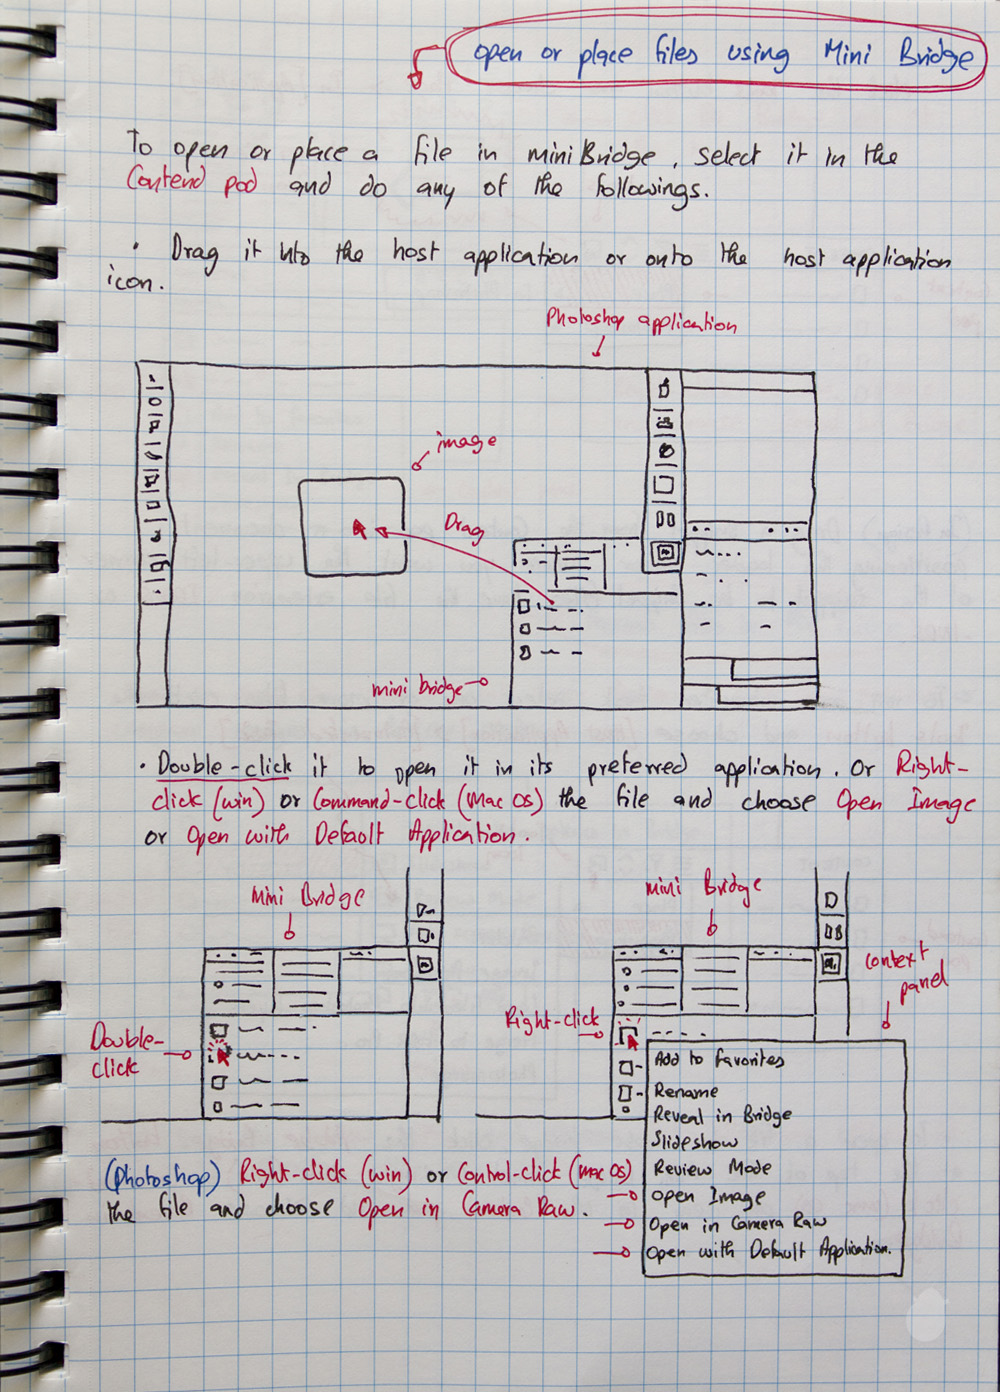 open or place files using Mini Bridge
To open or place a file in miniBridge, select it in the
Contend pod and do any of the followings.
· Drag it into the host application or onto the host application
icon.
Photoshop application
image
Drag
mini bridge
· Double-click it to open it in its preferred application. Or Right-
click (win) or Command-click (Mac OS) the file and choose Open Image
or Open with Default Application.
Mini Bridge
Double-
click
Mini Bridge
context
panel
Right-click
Add to Favorites
Rename
Reveal in Bridge
Slideshow
Review Mode
Open Image
Open in Camera Raw
Open with Default Application.
(Photoshop) Right-click (win) or Control-click (Mac OS)
the file and choose Open in Camera Raw.